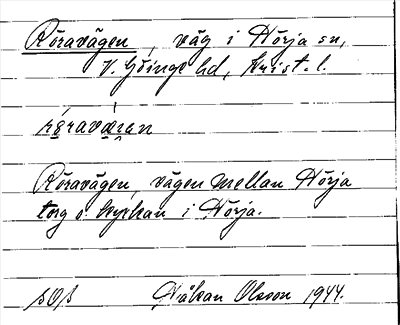 Röravägen, väg i Nörja sn,
V. Göinge hd, Krist. l.
Röravägen, vägen mellan Nörja
torg o. kyrkan i Nörja.
Håkan Olsson 1944.